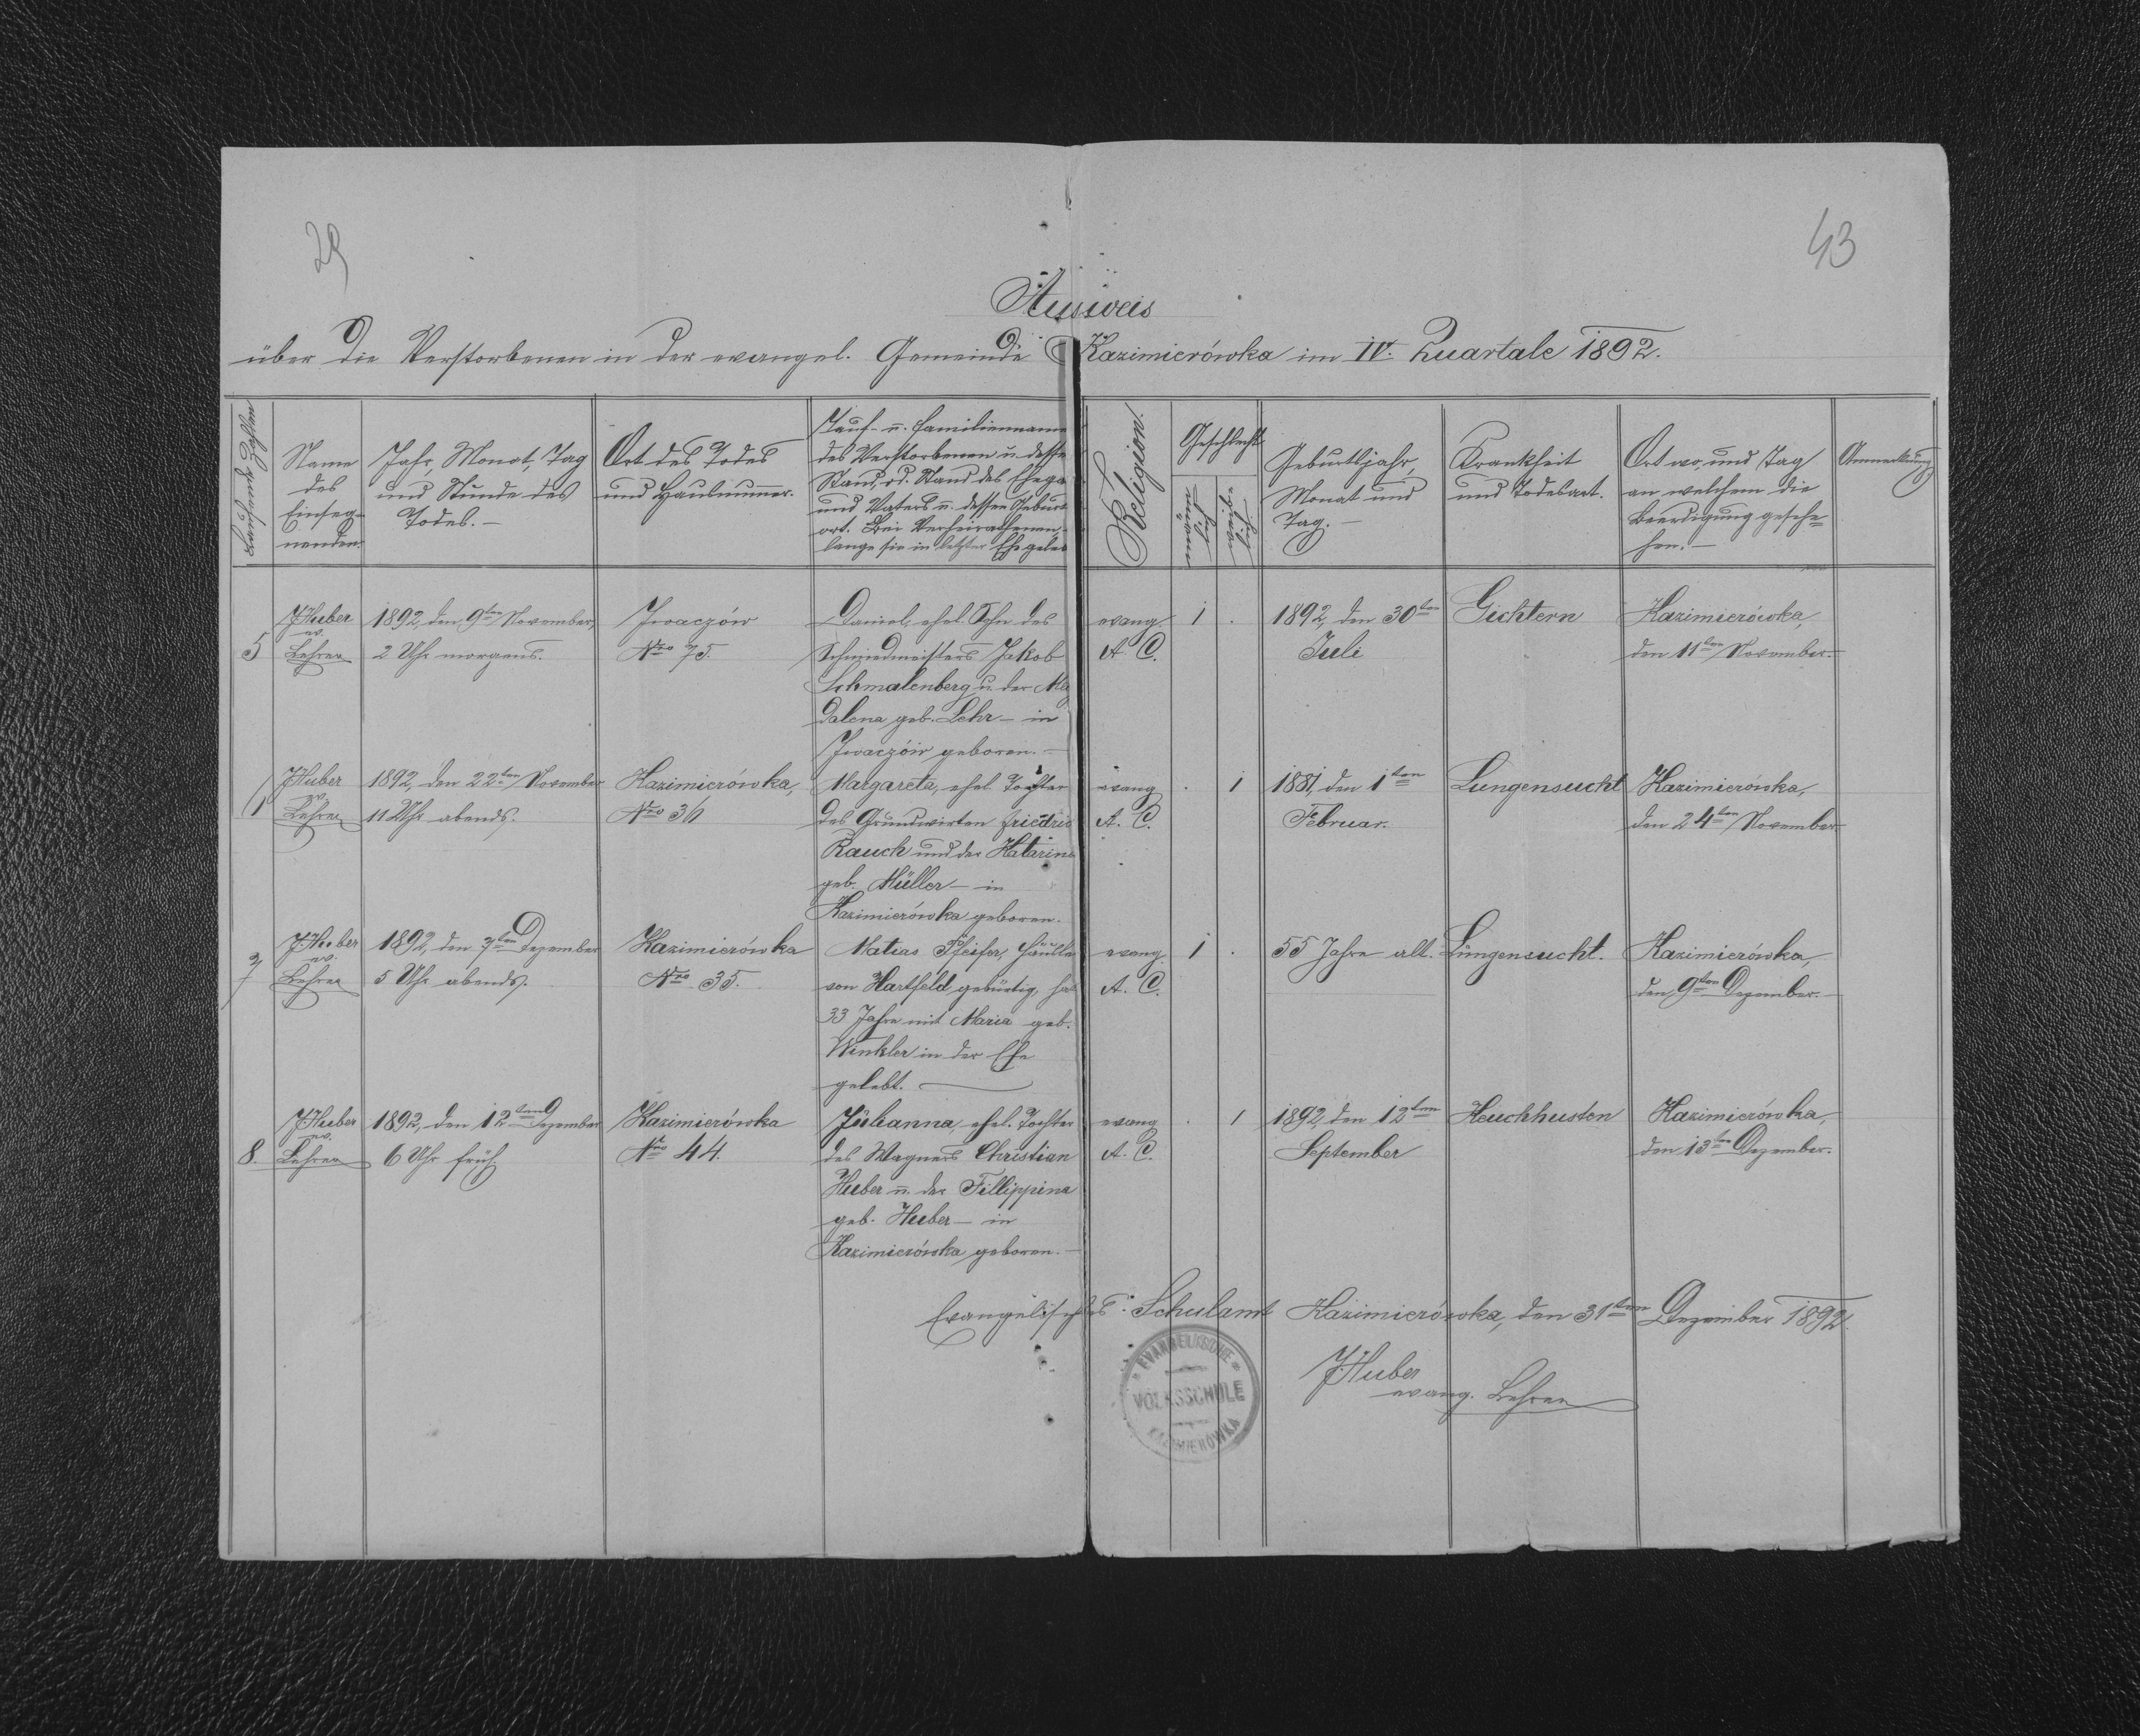 29
43
Ausweis
über die Verstorbenen in der evangel. Gemeinde Kazimierówka im IV. Quartale 1892.
Laufende Zahlen
Name
des
Einseg-
nenden.
Jahr, Monat, Tag
und Stunde des
Todes.
Ort des Todes
und Hausnummer.
Tauf- u. Familienname
des Verstorbenen u. dessen
Stand, od. Stand des
und Vaters u. dessen Geburts
ort. Bei Verheiratheten,
lange sie in letzter Ehe
Religion.
Geschlecht
männ
lich
weib-
lich
Geburtsjahr,
Monat und
Tag.
Krankheit
und Todesart.
Ort wo, und Tag
an welchem die
Beerdigung gesche-
hen.
Anmerkung
5
J Huber
ev.
Lehrer
1892, den 9ten November,
2 Uhr morgens.
Iwaczów
Nro 75.
Daniel, ehel. Sohn des
Schmiedmeisters Jakob
Schmalenberg u. der Mag
dalena geb. Lehr – in
Iwaczów geboren.
evang.
A. C.
1 .
1892, den 30ten
Juli
Gichtern
Kazimierówka,
den 11ten November.
6
J Huber
ev.
Lehrer
1892, den 22ten November
11 Uhr abends.
Kazimierówka,
Nro 36
Margareta, ehel. Tochter
des Grundwirten Friedric
Rauch und der Katarina
geb. Müller – in
Kazimierówka geboren.
evang.
A. C.
. 1
1881, den 1ten
Februar.
Lungensucht
Kazimierówka,
den 24ten November
7
J Huber
ev.
Lehrer
1892, den 7ten Dezember
5 Uhr abends.
Kazimierówka
Nro 35.
Matias Pfeifer, Häusler
von Hartfeld gebürtig, hat
33 Jahre mit Maria geb.
Winkler in der Ehe
gelebt.
evang.
A. C.
1 .
55 Jahre alt.
Lungensucht.
Kazimierówka,
den 9ten Dezember.
8.
J Huber
ev.
Lehrer
1892, den 12ten Dezember
6 Uhr früh
Kazimierówka
Nro 44.
Julianna, ehel. Tochter
des Wagners Christian
Huber u. der Fillippina
geb. Huber – in
Kazimierówka geboren.
evang
A. C.
. 1
1892, den 12ten
September
Keuchhusten
Kazimierówka,
den 13ten Dezember.
Evangelisches Schulamt Kazimierówka, den 31ten Dezember 1892.
J Huber
evang. Lehrer
EVANGELISCHE
VOLKSSCHULE
KAZIMIERÓWKA